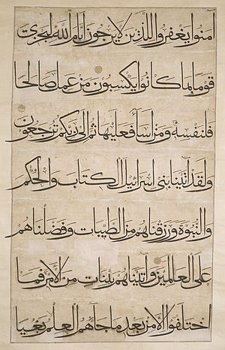 امنوا يغفروا للذين لا يرجون ايام الله ليجزى
قوما بما كانوا يكسبون من عمل صالحا
فلنفسه ومن اسا فعليها ثم الى ربكم ترجعون
ولقد آتينا بنى اسرائيل الكتاب والحكم
والنبوة ورزقناهم من الطيبات وفضلناهم
على العالمين وآتيناهم بينات من الامر فما
اختلفوا الا من بعد ما جاءهم العلم بغيا